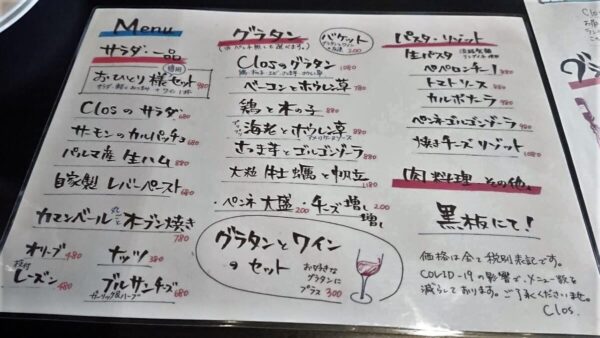 Menu
サラダ・一品
おひとり様セット 980
Closのサラダ 680
サーモンのカルパッチョ 880
パルマ産 生ハム 880
自家製 レバーペースト 680
カマンベール丸ごとオーブン焼き 780
オリーブ 480
ナッツ 380
枝付レーズン 480
ブルサンチーズ 680
ガーリック&ハーブ
グラタン
バケット
200
Closのグラタン 1080
ベーコンとホウレン草 780
鶏ときの子 880
海老とホウレン草 880
アメリケーヌソース
さつま芋とゴルゴンゾーラ 880
大粒 牡蠣と帆立 1180
・ペンネ大盛 200 ・チーズ増し増し 200
グラタンとワイン
のセット
お好きな
グラタンに
プラス 300
パスタ・リゾット
生パスタ
ペペロンチーノ 880
トマトソース 880
カルボナーラ 980
ペンネゴルゴンゾーラ 980
焼きチーズリゾット 1080
肉料理 その他。
黒板にて!
価格は全て税別表記です。
COVID-19の影響で、メニュー数を
減らしております。ご了承くださいませ。
Clos.